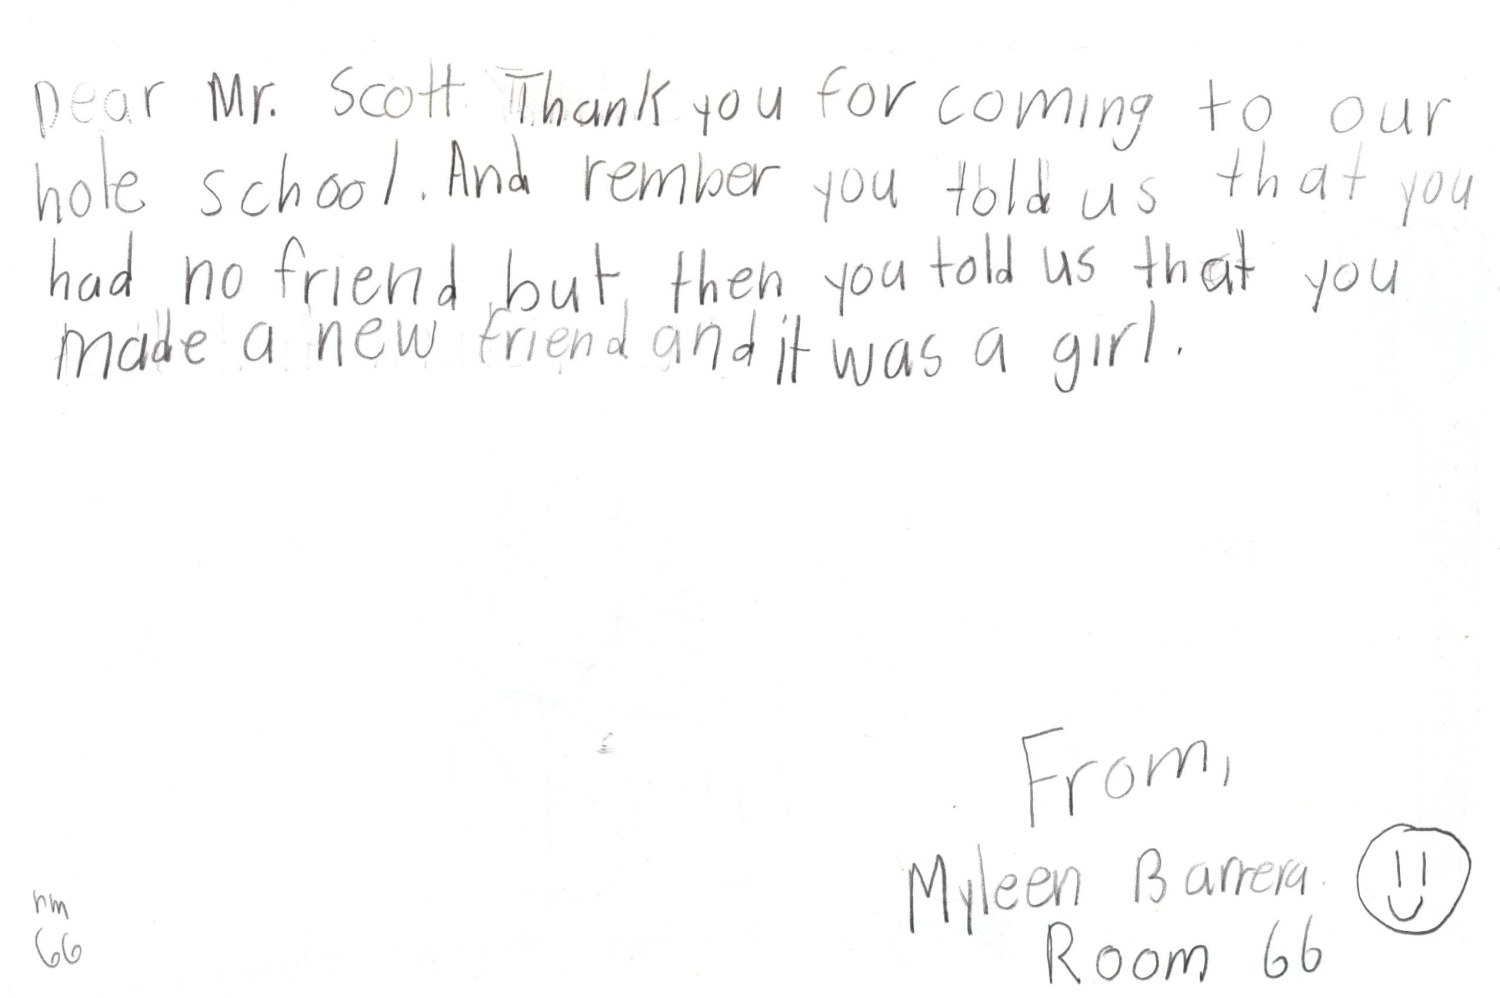 Dear Mr. Scott Thank you for coming to our
hole school. And rember you told us that you
had no friend but then you told us that you
made a new friend and it was a girl.
From,
Myleen Barrera
Room 66
rm
66